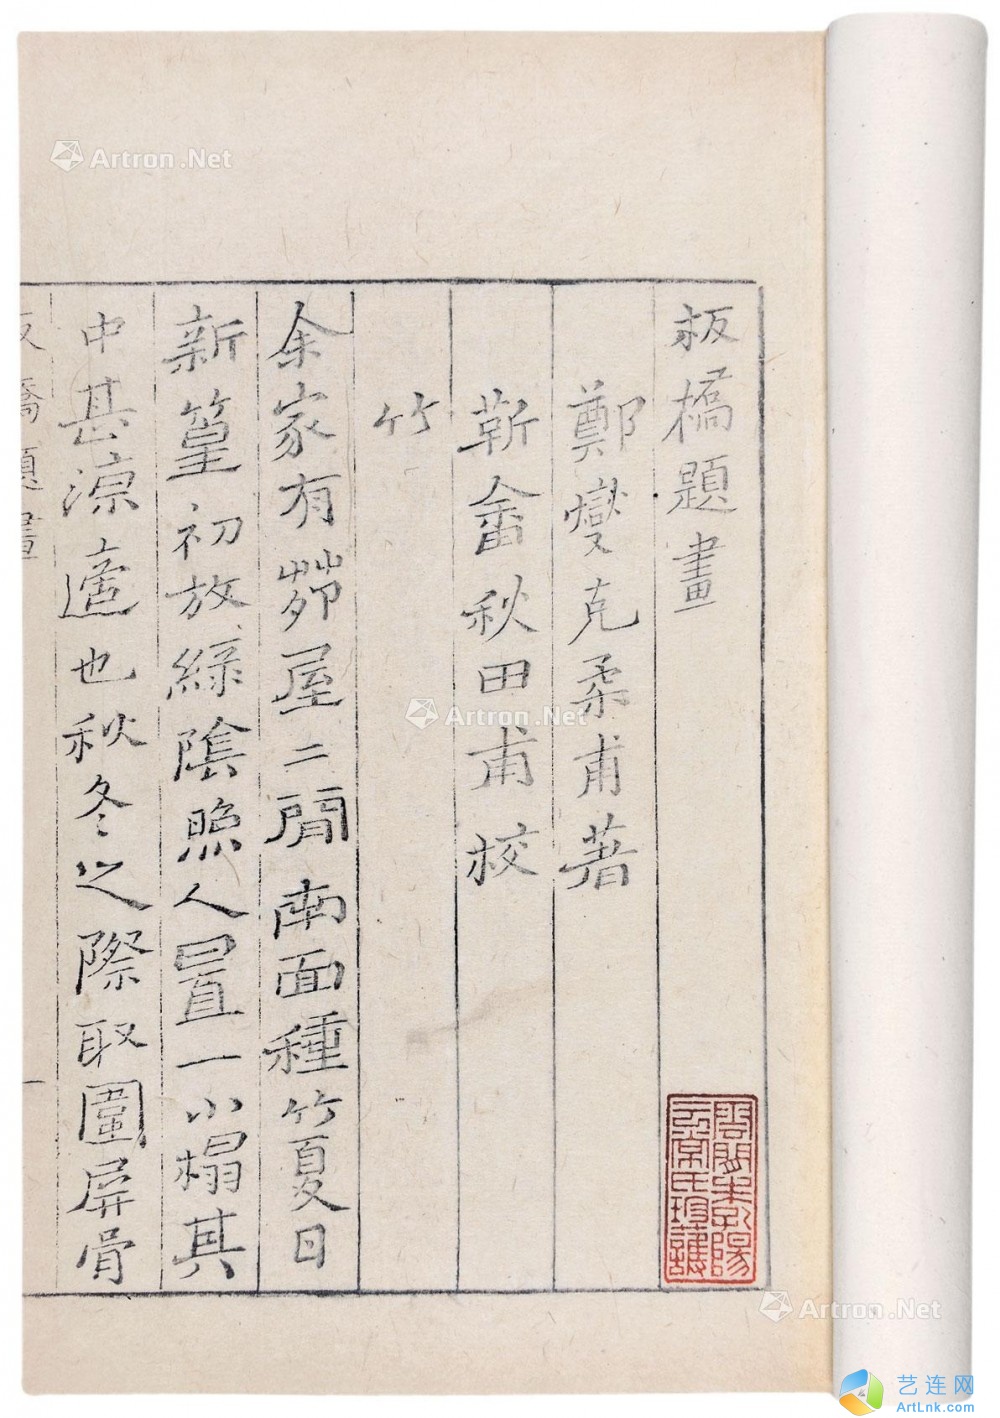 板橋題畫
鄭燮克柔甫著
靳畬秋田甫校
竹
余家有茆屋二間南面種竹夏日
新篁初放綠陰照人置一小榻其
中甚涼適也秋冬之際取圍屏骨
板橋題畫
一
Artron.Net
Artron.Net
Artron.Net
艺连网
ArtLnk.com